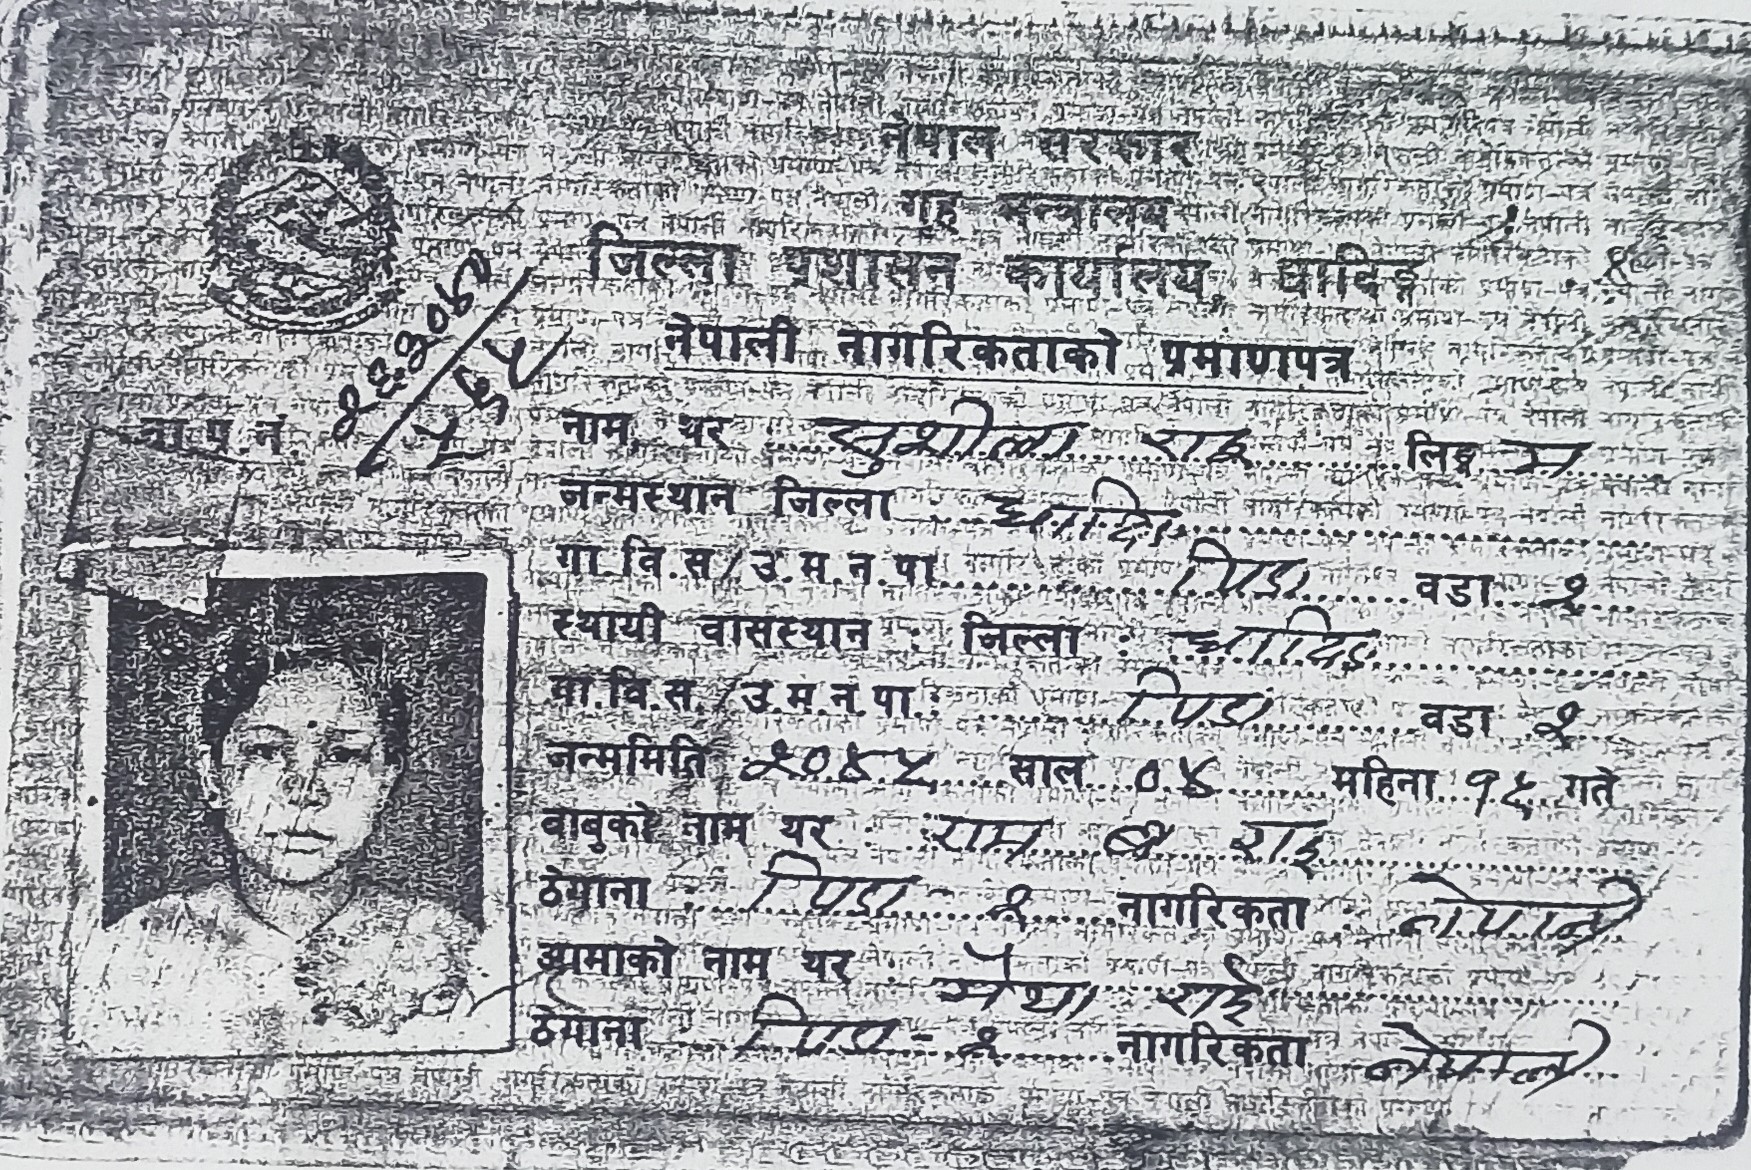 नेपाल सरकार
गृह मन्त्रालय
जिल्ला प्रशासन कार्यालय धादिङ्ग
नेपाली नागरिकताको प्रमाणपत्र
ना.प्र.नं.
नाम थर सुशीला राई लिङ्ग म
जन्मस्थान जिल्ला : धादिङ
गा.वि.स./उ.म.न.पा. पिडा वडा २
स्थायी वासस्थान : जिल्ला : धादिङ
गा.वि.स./उ.म.न.पा. : पिडा वडा २
जन्ममिति २०४५ साल ०४ महिना १५ गते
बाबुको नाम थर : राम ब राई
ठेगाना पिडा २ नागरिकता : नेपाली
आमाको नाम थर : मैया राई
ठेगाना : पिडा - २ नागरिकता नेपाली